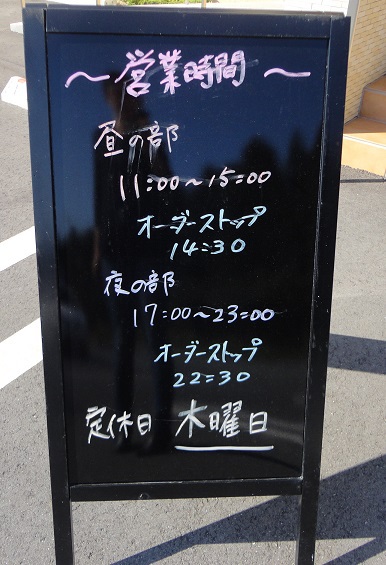 ～営業時間～
昼の部
11:00～15:00
オーダーストップ
14:30
夜の部
17:00～23:00
オーダーストップ
22:30
定休日 木曜日